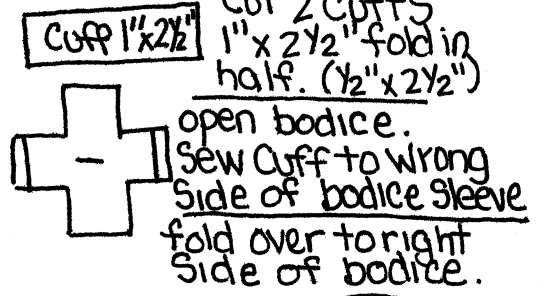 Cuff 1"x2½"
Cut 2 Cuffs
1"x 2½" fold in
half. (½"x2½")
open bodice.
Sew Cuff to Wrong
Side of bodice Sleeve
fold over to right
Side of bodice.